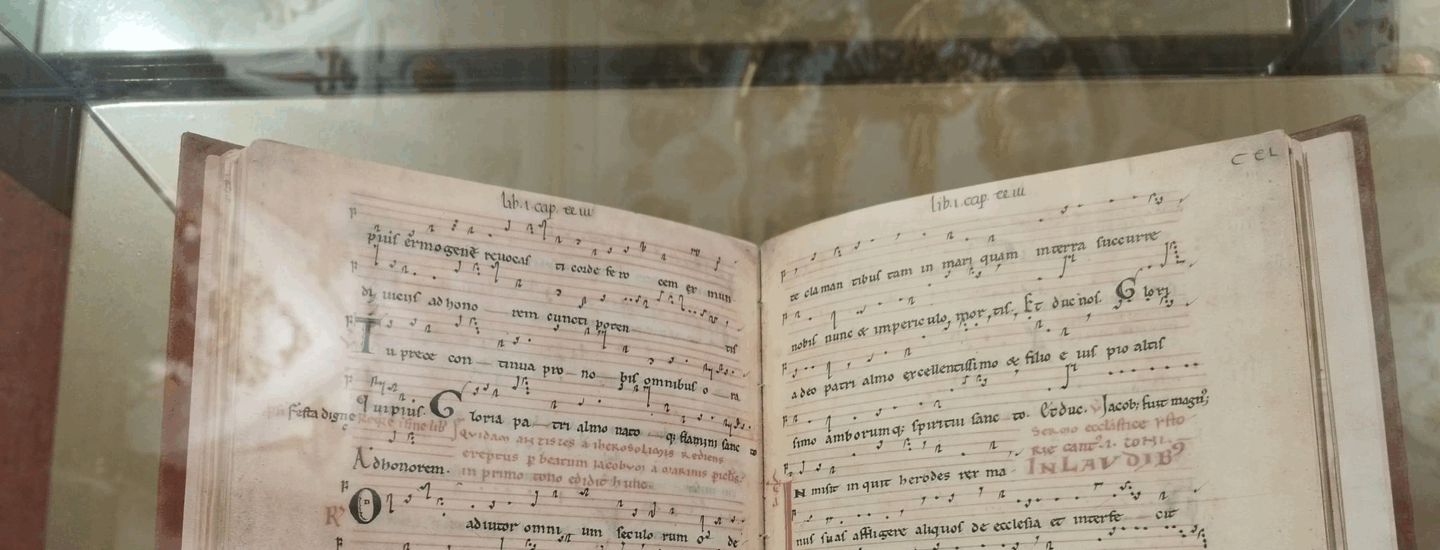 lib. i. cap.
piuſ ermogenē revocaſ ti corde fero cem & mun
di vicuſ ad hono rem cuncti poten tiſ
Tu prece con tinua pro no biſ omnibuſ o ra
festa digne
qui piuſ. Gloria pa tri almo nato q; flamini sanc to
Quidam antistes a iherosolimis rediens
Adhonorem. ereptus p beatum iacobum a marinis piclis
in primo tono edidit hunc.
R O adiutor omni um seculo rum o de
lib. i. cap.
CCL
te claman tibuſ tam in mari quam interra succurre
nobiſ nunc & impericulo mortiſ. Et duc noſ. Glori
a deo patri almo excellentissimo & filio e iuſ pio altiſ
simo amborumq; spiritui sanc to. Et duc. Iacobꝰ fuit magnꝰ
Sermo ecclesiastice ysto
rie
INLAUDIBꝰ
IN misit inquit herodeſ rex ma
nuſ suaſ affligere aliquoſ de ecclesia et interfe cit